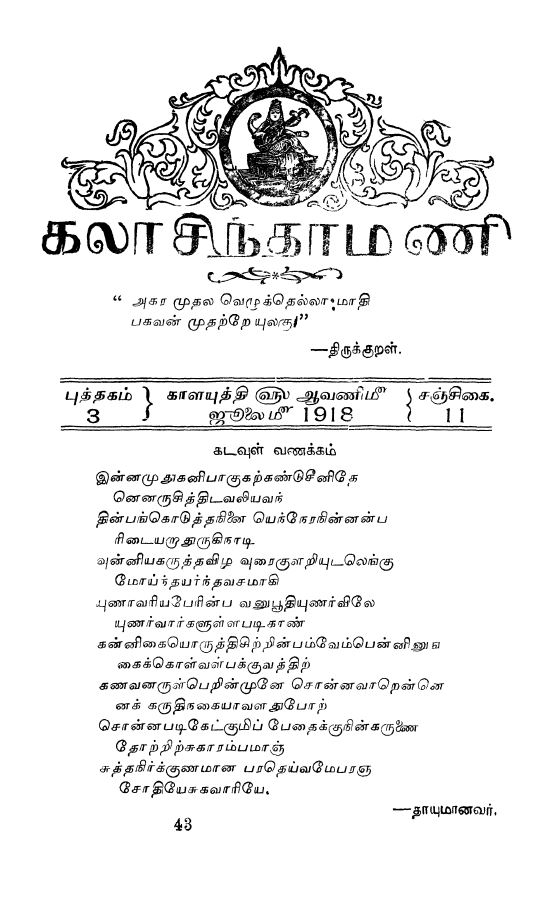 கலாசிந்தாமணி
“ அகர முதல வெழுத்தெல்லாமாதி
பகவன் முதற்றே யுலகு”
—திருக்குறள்.
புத்தகம் 3 } காளயுத்தி ௵ ஆவணி௴ { சஞ்சிகை.
ஜூலை௴ 1918 11
கடவுள் வணக்கம்
இன்னமுதுகனிபாகுகற்கண்டுசீனிதே
னெனருசித்திடவலியவந்
தின்பங்கொடுத்தநினை யெந்நேரநின்னன்ப
ரிடையறாதுருகிநாடி
வுன்னியகருத்தவிழ வுரைகுளறியுடலெங்கு
மோய்ந்தயர்ந்தவசமாகி
யுணர்வரியபேரின்ப வனுபூதியுணர்விலே
யுணர்வார்களுள்ளபடிகாண்
கன்னிகையொருத்திசிற்றின்பம்வேம்பென்னினுங்
கைக்கொள்வள்பக்குவத்திற்
கணவனருள்பெறின்முனே சொன்னவாறென்னெ
னக் கருதிநகையாவளதுபோற்
சொன்னபடிகேட்குமிப் பேதைக்குநின்கருணை
தோற்றிற்சுகாரம்பமாஞ்
சுத்தநிர்க்குணமான பரதெய்வமேபரஞ்
சோதியேசுகவாரியே.
—தாயுமானவர்.
43